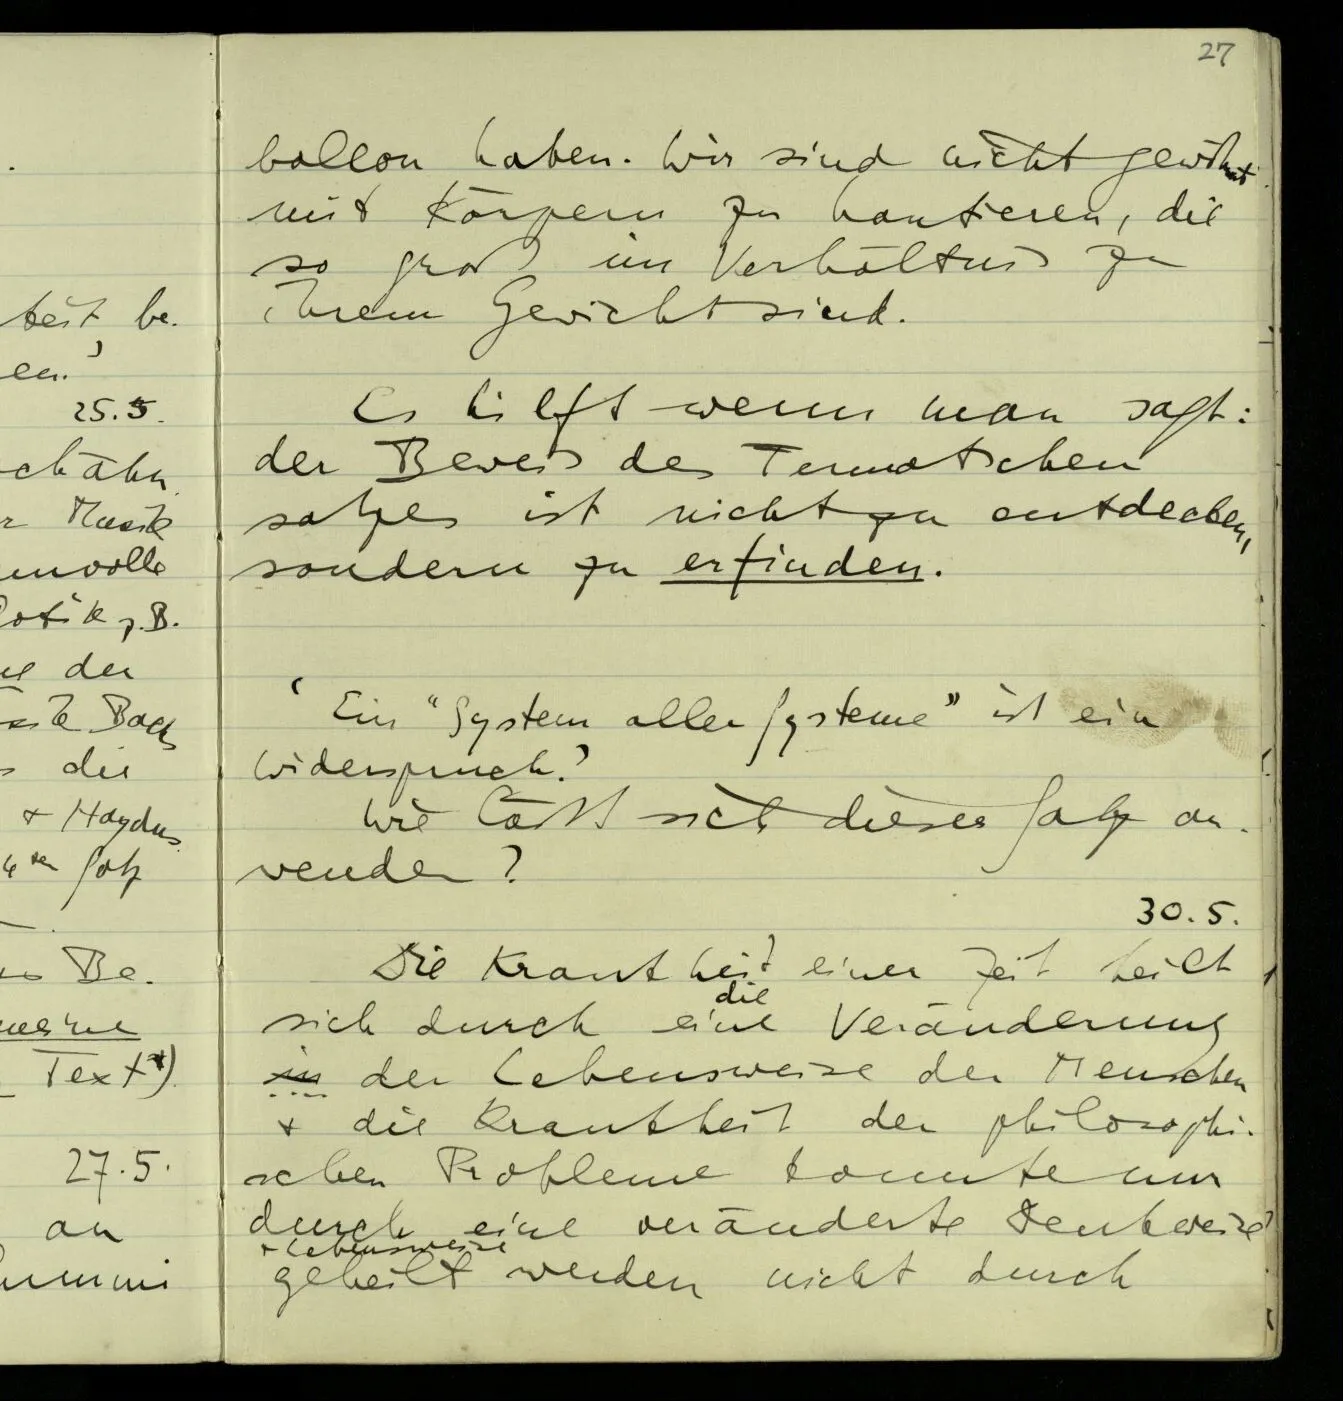 27
ballon haben. Wir sind nicht gewöhnt
mit Körpern zu hantieren, die
so groß im Verhältnis zu
ihrem Gewicht sind.
Es hilft wenn man sagt:
der Beweis des Fermatschen
satzes ist nicht zu entdecken,
sondern zu erfinden.
' Ein "System aller Systeme" ist ein
Widerspruch.'
Wie läßt sich dieser Satz an-
wenden?
30.5.
Die Krankheit einer Zeit heilt
die
sich durch eine Veränderung
in der Lebensweise der Menschen
+ die Krankheit der philosophi-
schen Probleme konnte nur
durch eine veränderte Denkweise
+ Lebensweise
geheilt werden nicht durch
be-
en.
25.5.
Musik
z.B.
der
die
+ Haydns
Satz
Be-
meine
Text*)
27.5.
an